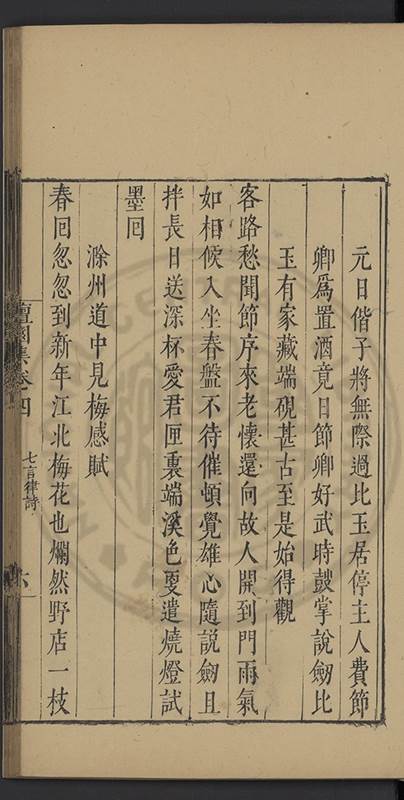 元日偕子將無際過比玉居停主人費節
卿爲置酒竟日節卿好武時鼓掌說劒比
玉有家藏端硯甚古至是始得觀
客路愁聞節序來老懷還向故人開到門雨氣
如相候入坐春盤不待催頓覺雄心隨說劒且
拌長日送深杯愛君匣裏端溪色更遣燒燈試
墨回
滁州道中見梅感賦
春回忽忽到新年江北梅花也爛然野店一枝
檀園集卷四
七言律詩
六